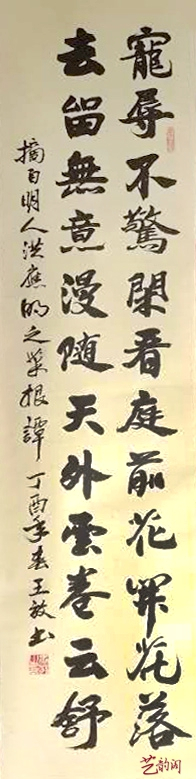 寵辱不驚閑看庭前花開花落
去留無意漫随天外雲卷云舒
摘自明人洪應明之菜根譚丁酉年春王敏書
艺韵阁